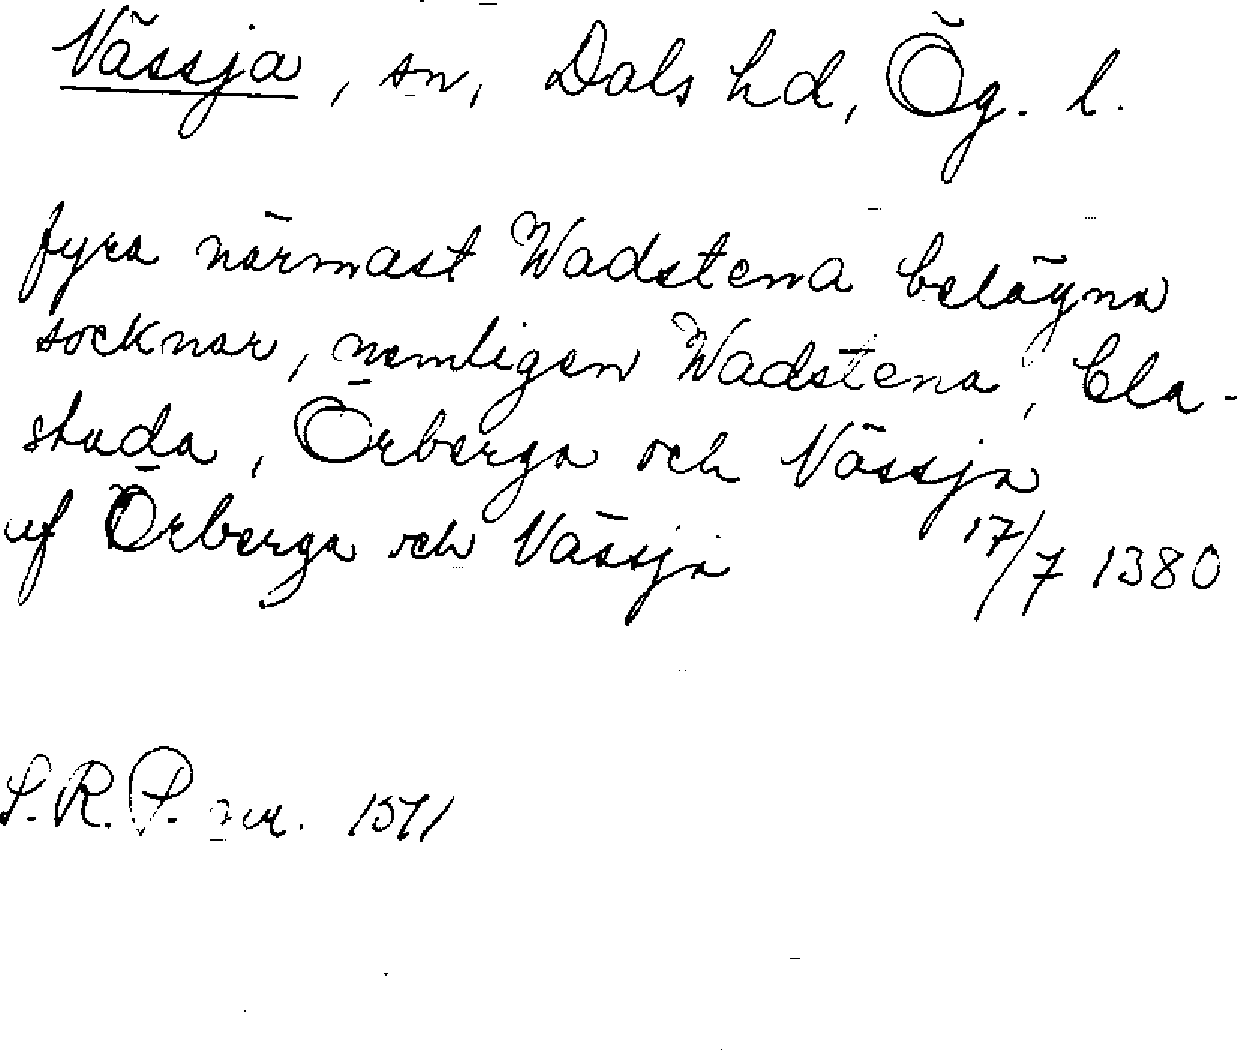 Nässja, sn, Dals hd, Ög. l.
fyra närmast Wadstena belägna
socknar, nemligen Wadstena, Cla-
stada, Örberga och Nässja
uf Örberga och Nässja 17/7 1380
S.R.P. nr. 1571